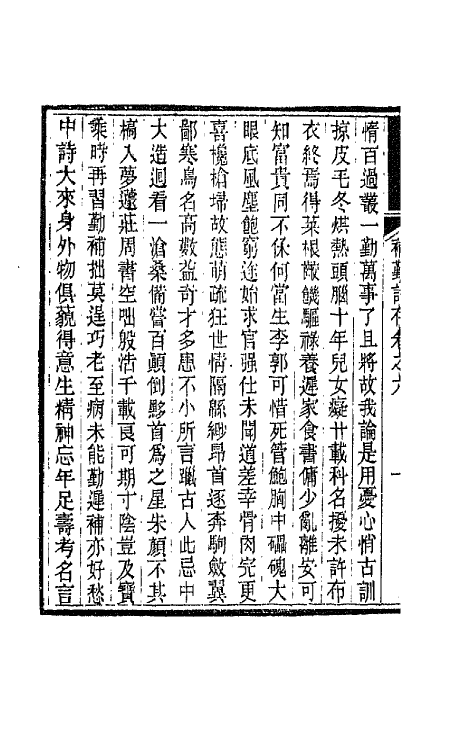 補勤詩存卷之九
一
惰百過叢一勤萬事了且將故我論是用憂心悄古訓
掠皮毛冬烘熱頭腦十年兒女癡廿載科名擾未許布
衣終焉得菜根齩饑驅祿養遲家食書傭少亂離安可
知富貴同不保何當生李郭可惜死管鮑胸中礧磈大
眼底風塵飽窮途始求官强仕未聞道差幸骨肉完更
喜欃槍埽故態萌疏狂世情隔緜緲昂首逐奔駒斂翼
鄙寒鳥名高數益奇才多患不小所言躐古人此忌中
大造迴看一滄桑備嘗百顛倒黟首爲之星朱顏不其
槁入夢蘧莊周書空咄殷浩千載良可期寸陰豈及寶
乘時再習勤補拙莫逞巧老至病未能勤遲補亦好愁
中詩大來身外物俱藐得意生精神忘年足壽考名言